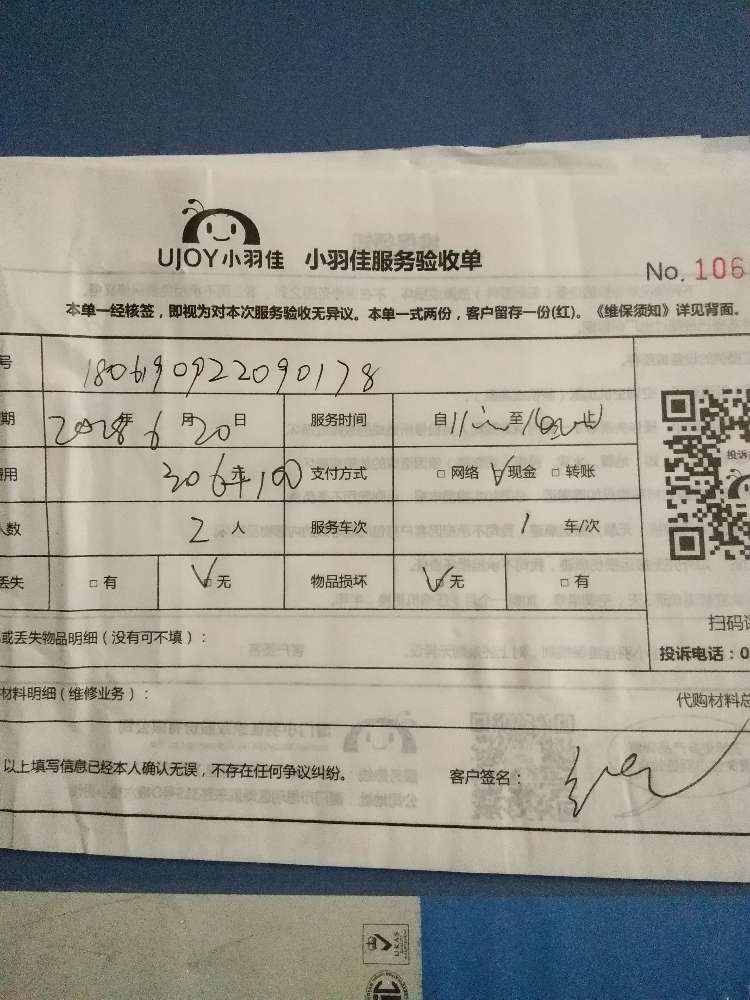 UJOY小羽佳 小羽佳服务验收单
No. 106
本单一经核签，即视为对本次服务验收无异议。本单一式两份，客户留存一份(红)。《维保须知》详见背面。
号 1806190922090178
期 年6月20日 服务时间 自11:至 止
用 306 100 支付方式 □网络 √现金 □转账
人数 2人 服务车次 1 车/次
丢失 □有 √无 物品损坏 √无 □有
或丢失物品明细（没有可不填）：
扫码
投诉电话：0
材料明细（维修业务）：
代购材料总
以上填写信息已经本人确认无误，不存在任何争议纠纷。
客户签名：
UKAS